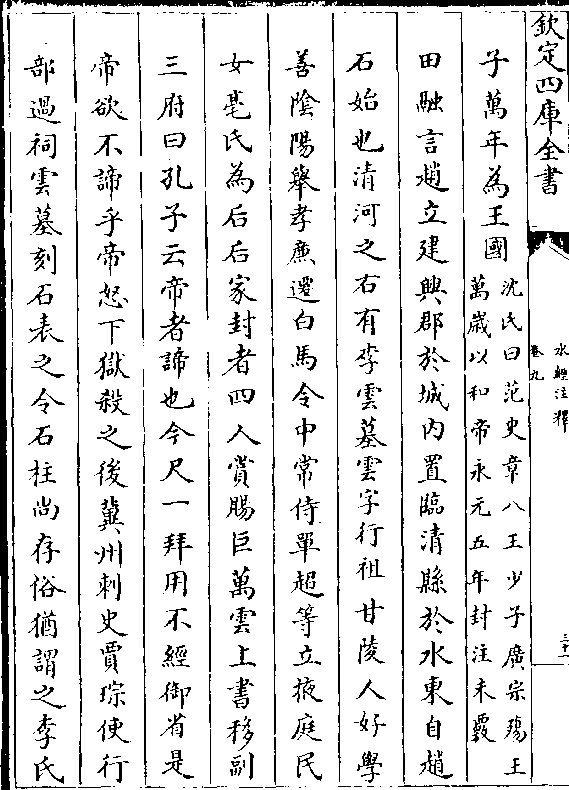 欽定四庫全書
水經注釋
卷九
三十一
子萬年為王國
沈氏曰范史章八王少子廣宗殤王
萬歲以和帝永元五年封注未覈
田融言趙立建興郡於城内置臨清縣於水東自趙
石始也清河之右有李雲墓雲字行祖甘陵人好學
善陰陽舉孝廉遷白馬令中常侍單超等立掖庭民
女亳氏為后后家封者四人賞賜巨萬雲上書移副
三府曰孔子云帝者諦也今尺一拜用不經御省是
帝欲不諦乎帝怒下獄殺之後冀州刺史賈琮使行
部過祠雲墓刻石表之今石柱尚存俗猶謂之李氏